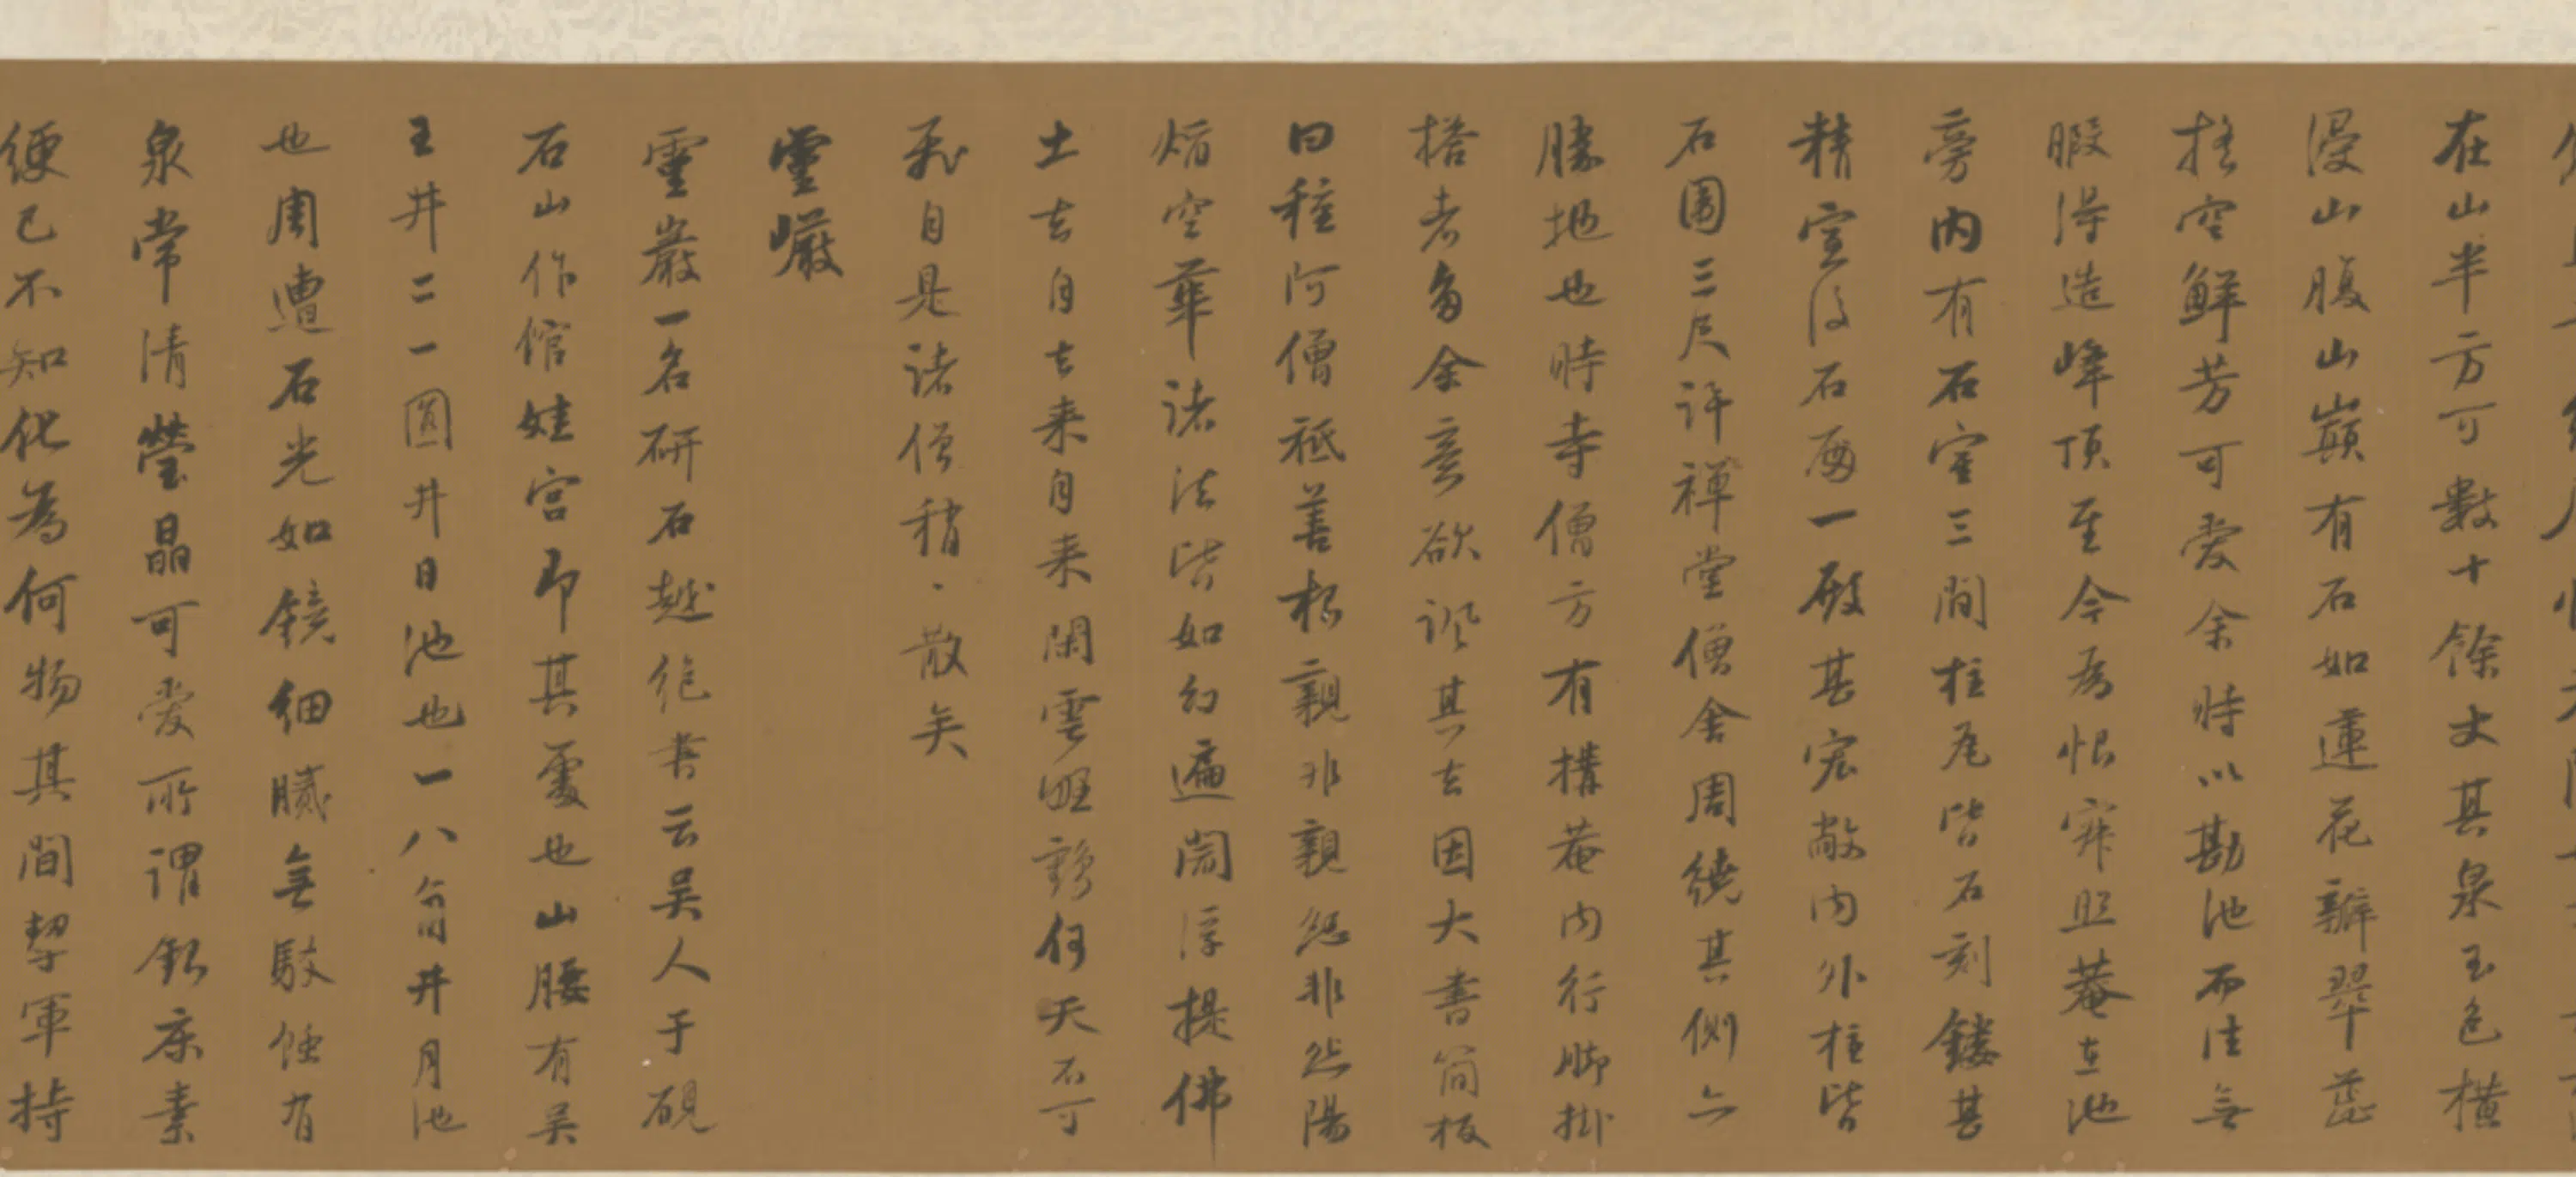 在山半方可數十餘丈其泉玉色橫
浸山腹山巔有石如蓮花瓣翠蕊
搖空鮮芳可愛余時以勘池而往無
暇得造峰頂至今為恨寂照菴在池
旁內有石室三間柱瓦皆石刻鏤甚
精室後石函一殿甚宏敞內外柱皆
石圍三尺許禪堂僧舍周繞其側亦
勝地也時寺僧方有構菴內行腳掛
搭者多余意欲諷其去因大書簡板
曰種何僧祇善根親非親怨非怨陽
焰空華諸法皆如幻遍閻浮提佛
土去自去來自來閑雲野鶴何天不可
飛自是諸僧稍、散矣
靈巖
靈巖一名研石越絕書云吳人于硯
石山作館娃宮即其處也山腰有吳
王井二一圓井日池也一八角井月池
也周遭石光如鏡細膩無駁蝕有
泉常清瑩晶可愛所謂銀床素
綆已不知化為何物其間挈軍持